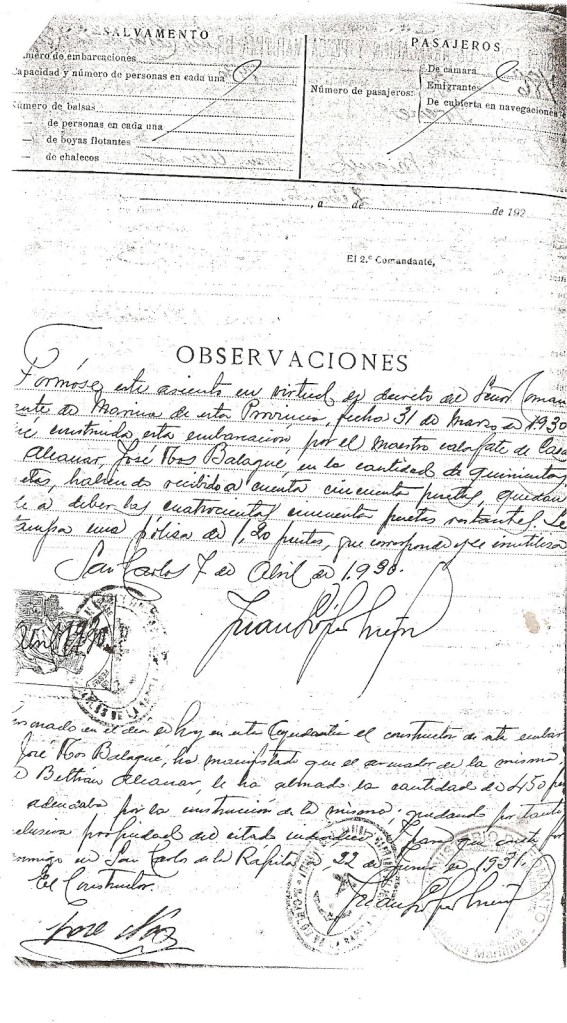 SALVAMENTO
mero de embarcaciones
apacidad y número de personas en cada una
Número de balsas
— de personas en cada una
— de boyas flotantes
— de chalecos
PASAJEROS
Número de pasajeros:
De cámara
Emigrantes
De cubierta en navegaciones
, a de de 192
El 2.º Comandante,
OBSERVACIONES
Formósez este asiento en virtud de decreto del Señor Coman
nte de Marina de esta Provincia, fecha 31 de Marzo de 1930
ué construida esta embarcación por el Maestro calafate de Casa
Alcanar, José Nos Balagué en la cantidad de quinientas
etas, habiendo recibido a cuenta cincuenta pesetas, quedan
le a deber las cuatrocientas cincuenta pesetas restantes. Se
tampa una póliza de 1,20 pesetas, que corresponde y se inutiliza
San Carlos 7 de Abril de 1.930.
Juan López
1930
rsonado en el dia de hoy en esta Ayudantía el constructor de esta embar
José Nos Balagué, ha manifestado que el armador de la misma,
Beltran Alcanar, le ha abonado la cantidad de 450 p
adeudaba por la construcción de la misma, quedando por tanto
clusiva propiedad del citado individuo. Y para que conste
onmigo en San Carlos de la Rápita a 22 de Junio de 1931.
El Constructor.
Juan López
José Nos